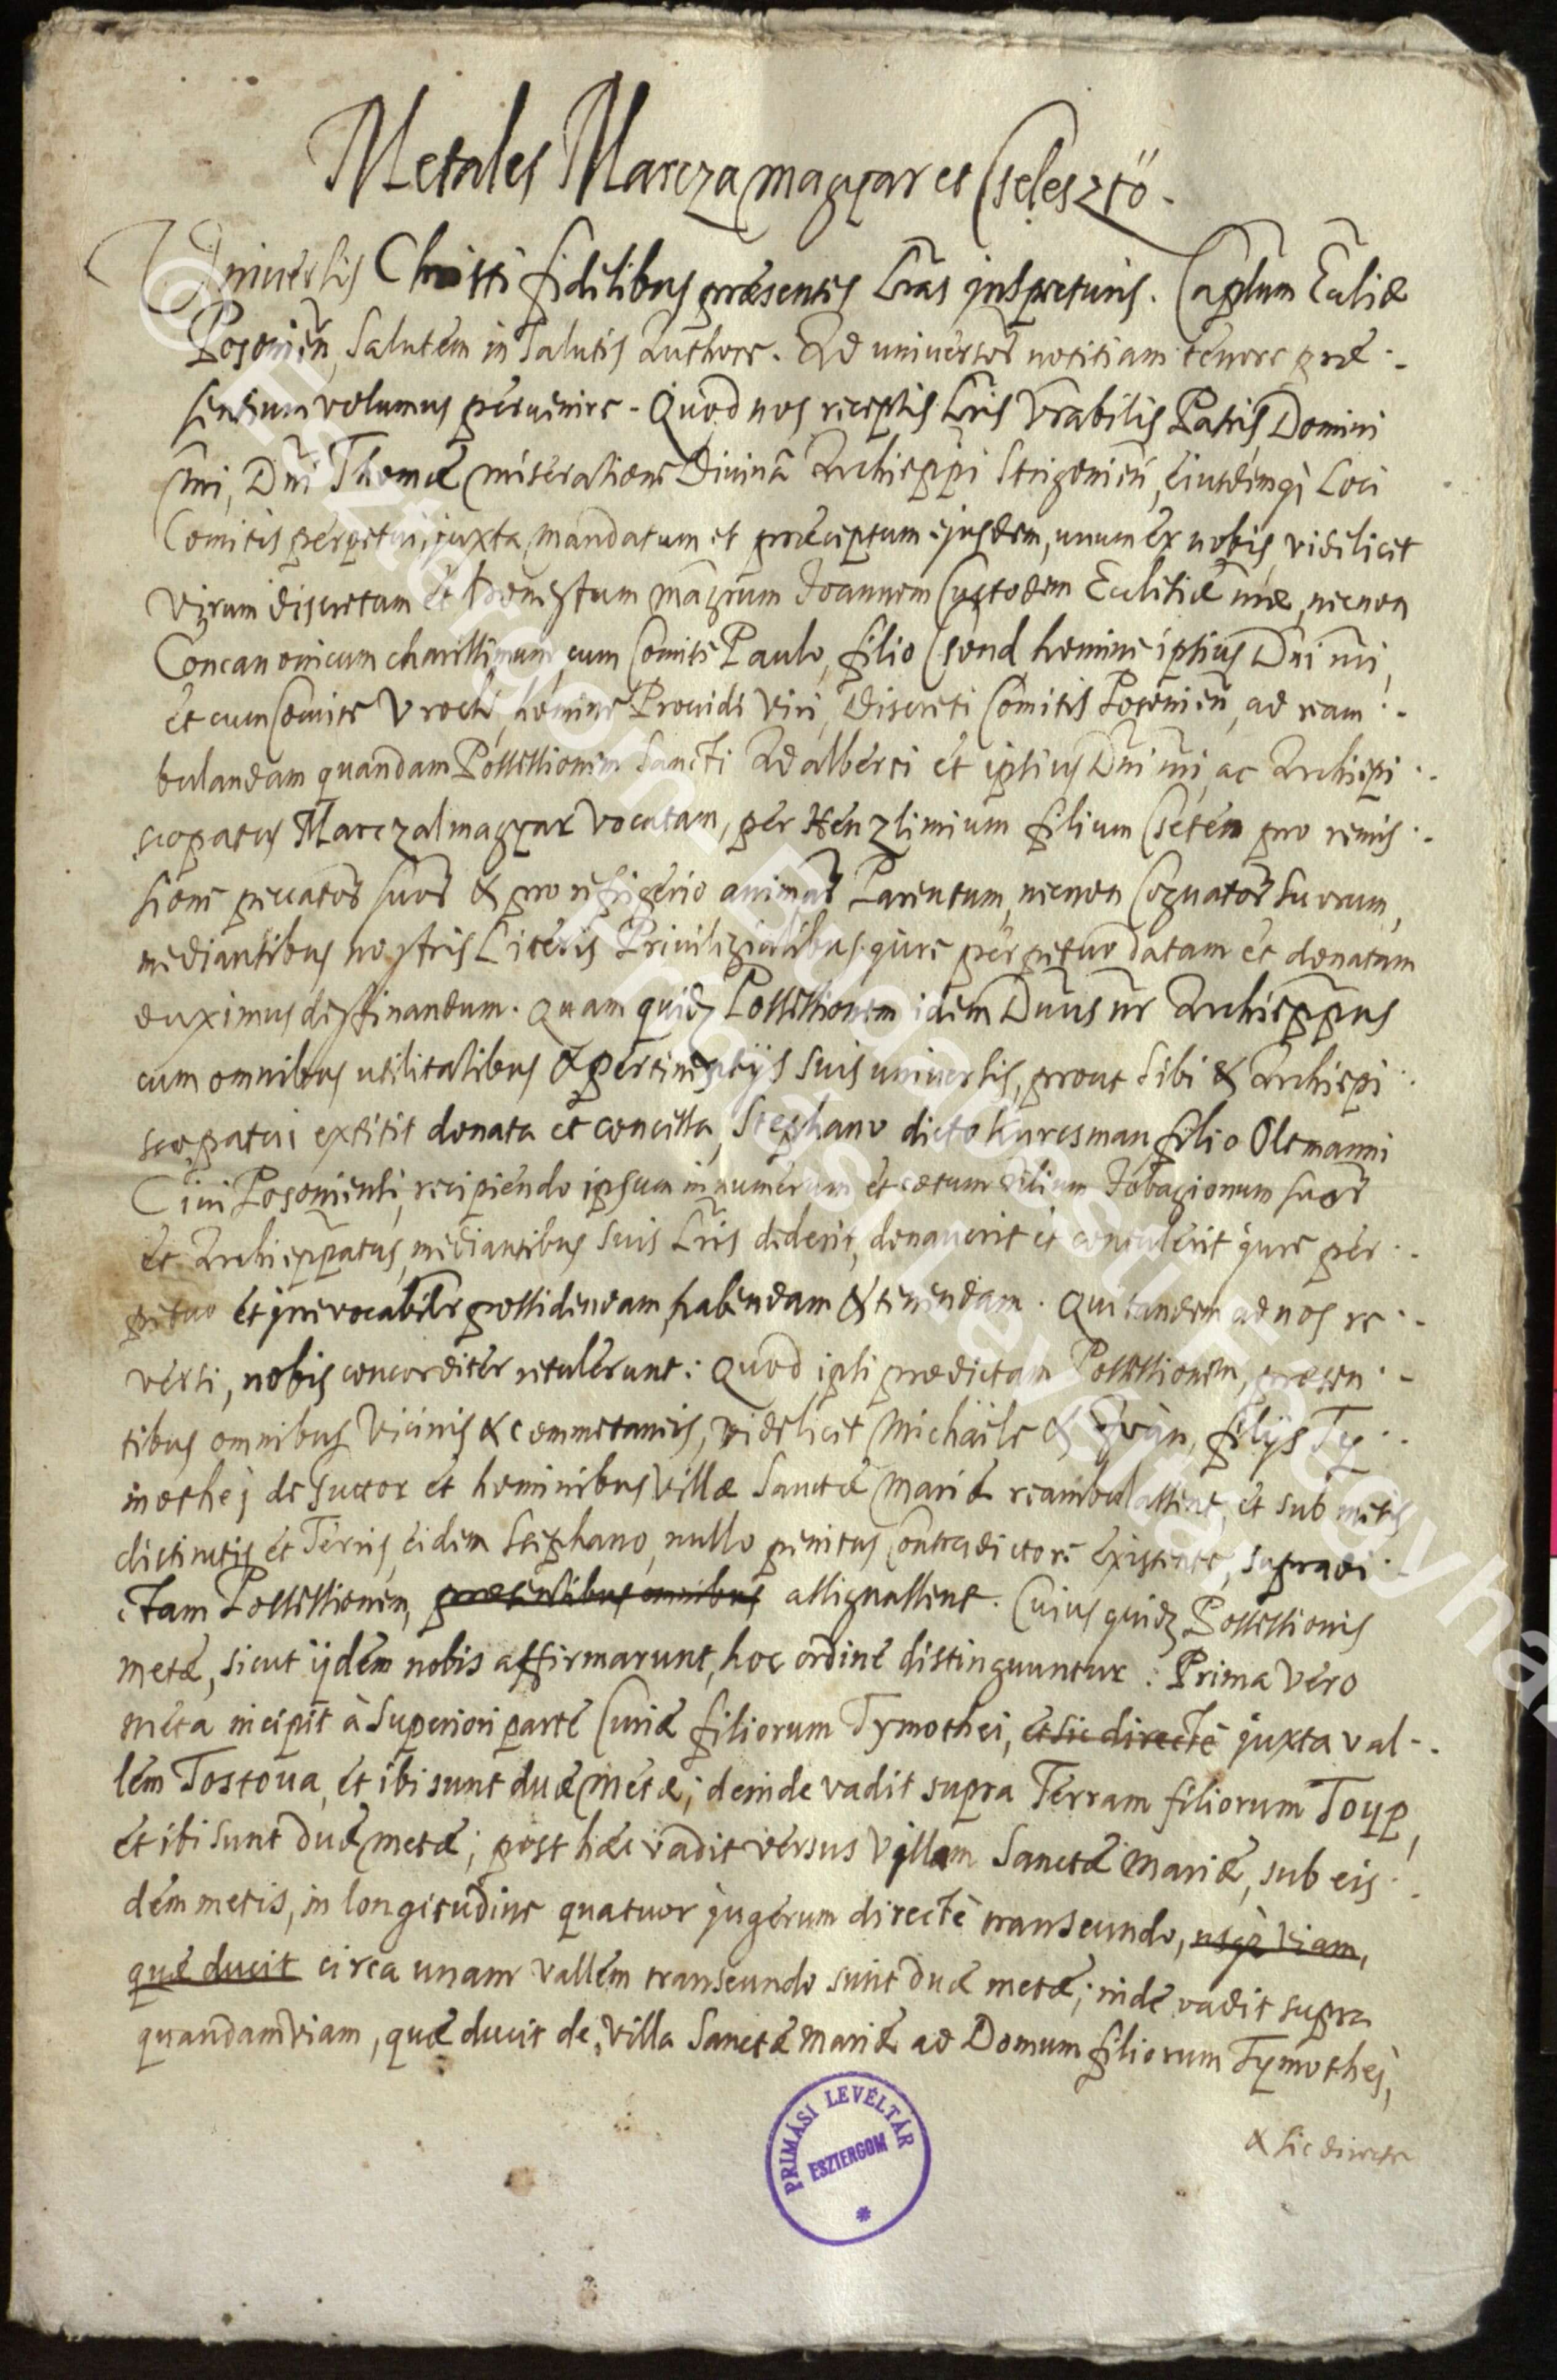 Metales Marcza magyar et Cselesztö.
Universis Christi fidelibus præsentes Lras inspecturis. Caplum Ecliæ
Posonien, Salutem in Salutis Authore. Ad universor notitiam tenore præ-
sentium volumus pervenire. Quod nos receptis Lris Vrabilis Patris Domini
nri, Dni Thomæ miseratione Divina Archieppi Strigonien, eiusdemq; Loci
Comitis perpetui, juxta mandatum et præceptum ejusdem, unum ex nobis, videlicet
Virum discretum et honestum magrum Joannem Custodem Ecclesiæ nræ, necnon
Concanonicum charissimum, cum Comite Paulo, filio Csond homine ipsius Dni nri,
et cum Comite Vrochi, homine Providi Viri, Discreti Comitis Posonien, ad ream-
bulandam quandam Possessionem Sancti Adalberti et ipsius Dni nri, ac Archiepi-
scopatus Marczalmagyar vocatam, per Henzlimium filium Cseten pro remis-
sione peccator suor & pro refrigerio animar Parentum, necnon Cognator suorum,
mediantibus nostris Literis Privilegialibus jure perpetuo datam et donatam
duximus destinandum. Quam quidz Possessionem idem Dnus nr Archieppus
cum omnibus utilitatibus & pertinentijs suis universis, prout sibi & Archiepi-
scopatui extitit donata et concessa, Stephano dicto Kuresman filio Oltmanni
Civi Posoniensi, recipiendo ipsum in numerum et cætum filium Jobagionum suor
et Archieppatus, mediantibus suis Lris dederit, donaverit et contulerit jure per-
petuo et irrevocabiler possidendam, habendam & tenendam. Qui tandem ad nos re-
versi, nobis concorditer retulerunt: Quod ipsi prædictam Possessionem, præsen-
tibus omnibus Vicinis & commetaneis, videlicet Michaële & Iván, filijs Ty-
mothej de Suttor et hominibus Villæ Sanctæ Mariæ reambulassent, et sub metis
distinctis et Terris, eidem Stephano, nullo penitus contradictore existente, supradi-
ctam Possessionem, præsentibus omnibus assignassent. Cuius quidz Possessionis
metæ, sicut ijdem nobis affirmarunt, hoc ordine distinguuntur: Prima vero
meta incipit à Superiori parte Curiæ filiorum Tymothei, et sic directè juxta val-
lem Tostoua, et ibi sunt duæ metæ; deinde vadit supra Terram filiorum Toyp,
et ibi sunt duæ metæ; post hæc vadit versus Villam Sanctæ Mariæ, sub eis-
dem metis, in longitudine quatuor jugerum directè transeundo, usq; viam,
quæ ducit circa unam vallem transeundo sunt duæ metæ; inde vadit supra
quandam viam, quæ ducit de Villa Sanctæ Mariæ ad Domum filiorum Tymothej,
& sic directe
PRIMÁSI LEVÉLTÁR
ESZTERGOM